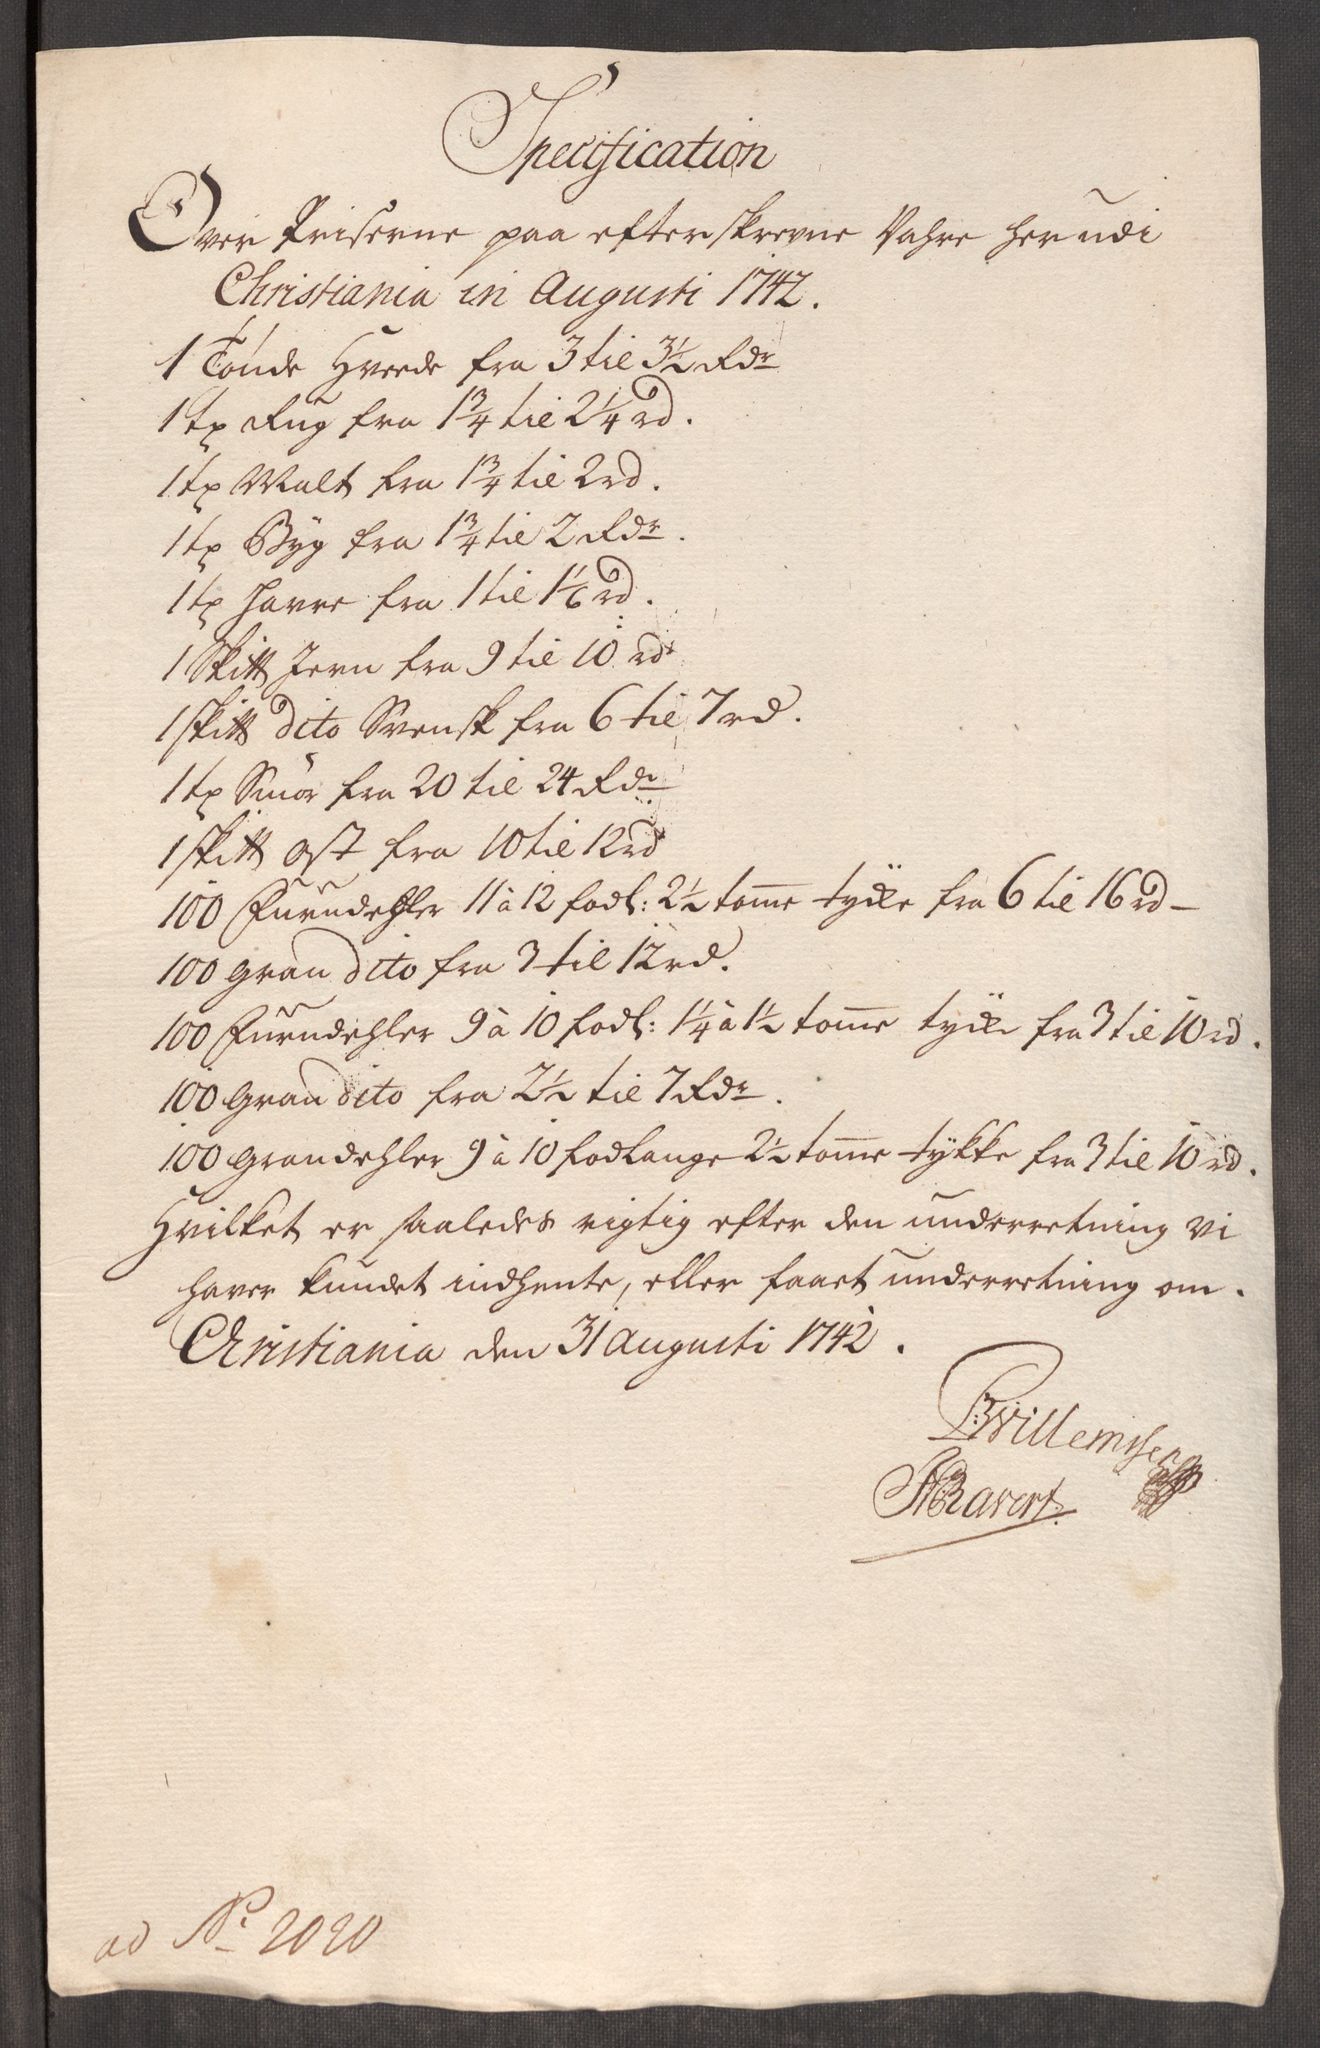 Specification
Over Priserne paa efterskrevne Vahre her udi
Christiania in Augusti 1742.
1 Tønde Hvede fra 3 til 3½ Rdr
1 tø Rug fra 1¾ til 2¼ rd.
1 tø Malt fra 1¾ til 2 rd.
1 tø Byg fra 1¾ til 2 Rdr.
1 tø Havre fra 1 til 1⅙ rd.
1 Ski℔ Jern fra 9 til 10 rdr
1 ski℔ dito Svensk fra 6 til 7 rd.
1 tø Smør fra 20 til 24 Rdr
1 ski℔ ost fra 10 til 12 rdr
100 Furudehler 11 à 12 fodl: 2½ tomme tycke fra 6 til 16 rd
100 gran dito fra 3 til 12 rd.
100 Furudehler 9 à 10 fodl: 1¼ à 1½ tomme tycke fra 3 til 10 rd.
100 Gran dito fra 2½ til 7 Rdr.
100 Grandehler 9 à 10 fodlange 2½ tomme tykke fra 3 til 10 rd.
Hvilket er saaledes rigtig efter den underretning vi
haver kundet indhente, eller faaet underretning om.
Christiania den 31 Augusti 1742.
Willemssen
Ravert
ad No 2020